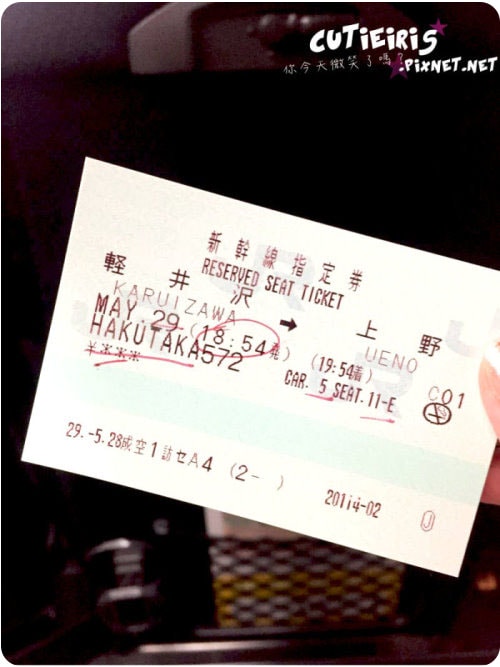 CUTIEIRIS
你今天微笑了嗎?
.PIXNET.NET
新幹線指定券
RESERVED SEAT TICKET
軽井沢 → 上野
KARUIZAWA UENO
MAY 29 (18:54発) (19:54着) C01
HAKUTAKA572 CAR. 5 SEAT.11-E
¥****
29.-5.28成空1 セA4 (2- ) 20114-02